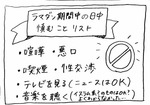 ラマダン期間中の日中
慎むこと リスト
・喧嘩・悪口
・喫煙・性交渉
・テレビを見る(ニュースはOK)
・音楽を聴く(イスラム系のものはOK!